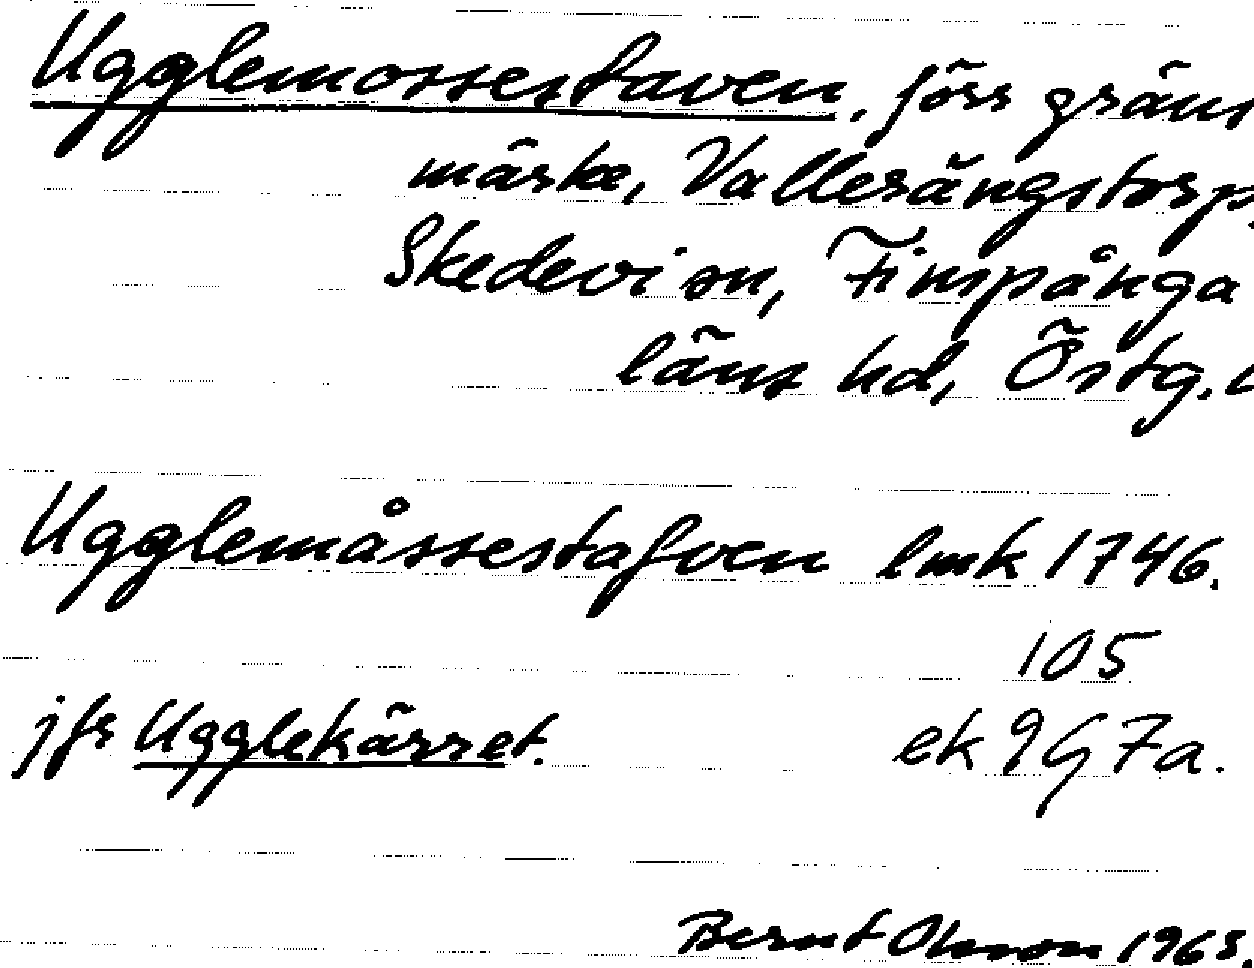 Ugglemossestaven, förr gräns
märke, Vallerängstorp,
Skedevi sn, Finspånga
läns hd, Östg. l
Ugglemåssestafven lmk 1746.
105
jfr Ugglekärret. ek 9G7a.
Bernt Olsson 1963.